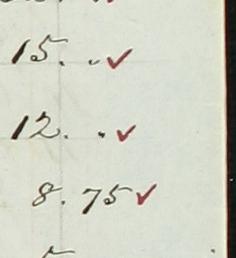 15. " ✓
12. " ✓
8.75 ✓